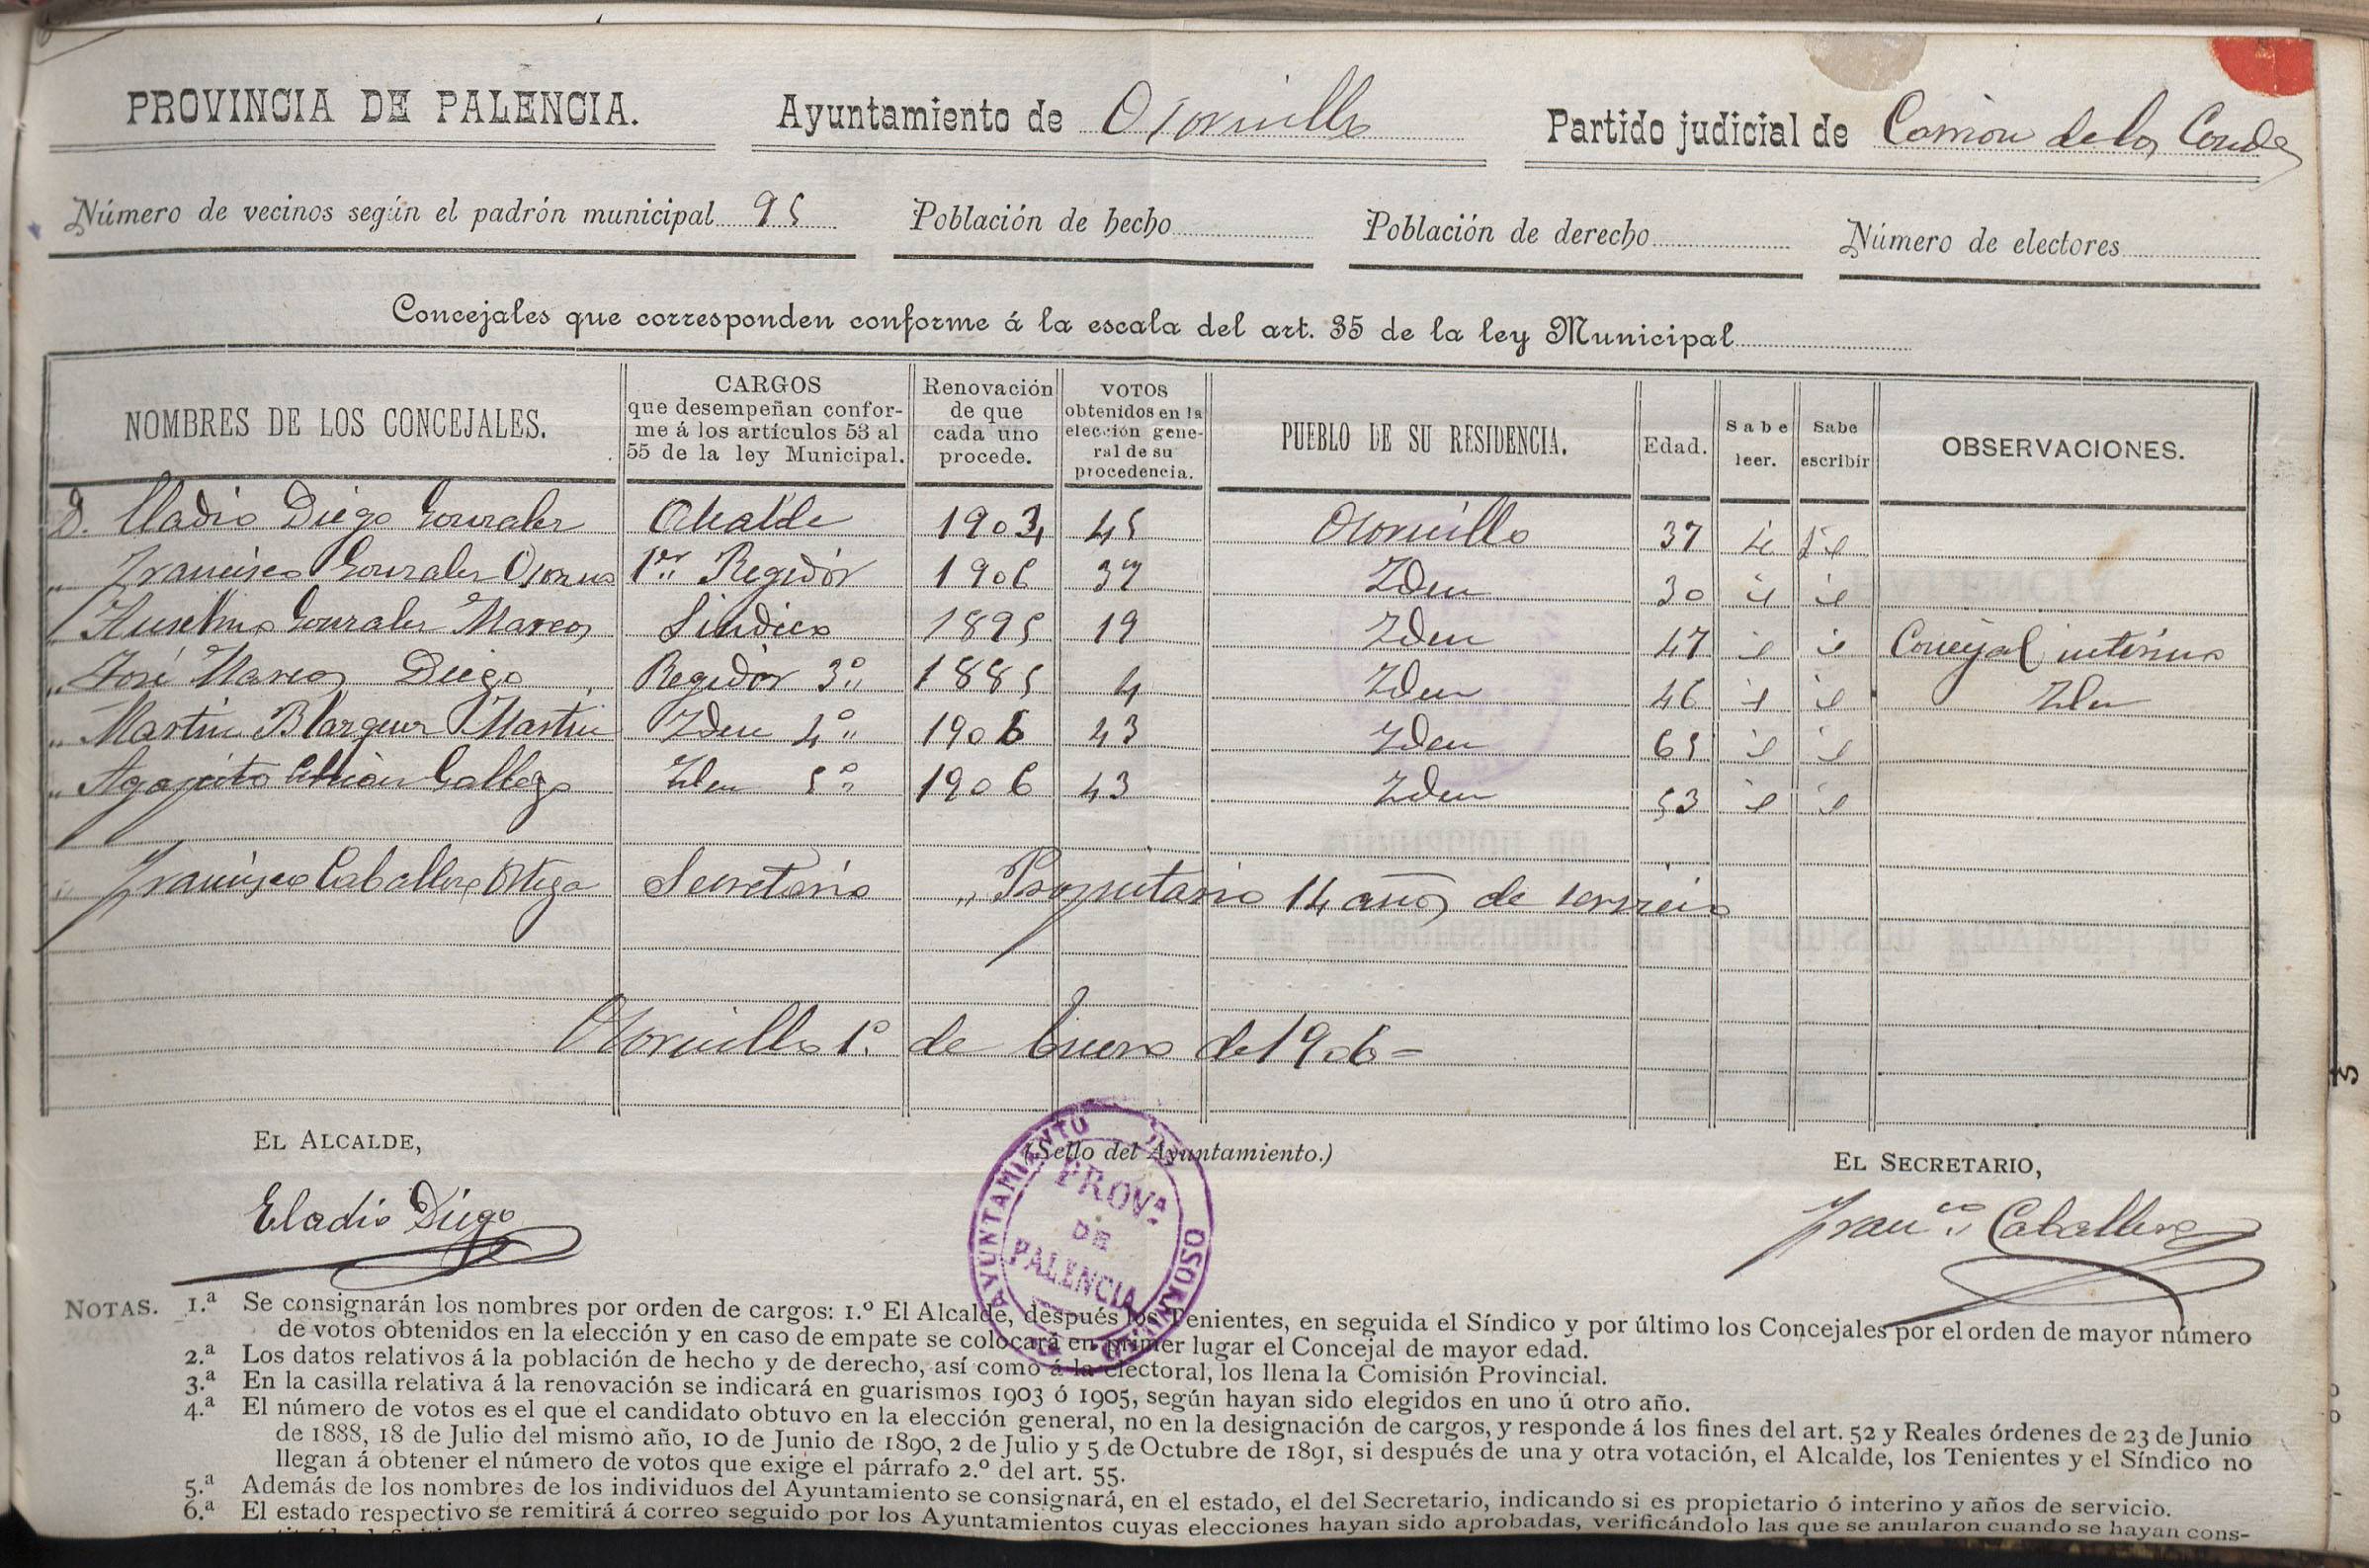 PROVINCIA DE PALENCIA. Ayuntamiento de Osornillo Partido judicial de Carrion de los Condes
Número de vecinos según el padrón municipal 95 Población de hecho Población de derecho Número de electores
Concejales que corresponden conforme á la escala del art. 35 de la ley Municipal
NOMBRES DE LOS CONCEJALES. CARGOS que desempeñan conforme á los artículos 53 al 55 de la ley Municipal. Renovación de que cada uno procede. VOTOS obtenidos en la elección general de su procedencia. PUEBLO DE SU RESIDENCIA. Edad. Sabe leer. Sabe escribir OBSERVACIONES.
D. Eladio Diego Gonzalez Alcalde 1904 45 Osornillo 37 si si
" Francisco Gonzalez Osorno 1er Regidor 1906 37 Idem 30 si si
" Anselmo Gonzalez Marcos Sindico 1895 19 Idem 47 si si Concejal interino
" José Marcos Diego Regidor 3º 1885 4 Idem 46 si si Idem
" Martin Blazquez Martin Idem 4º 1906 43 Idem 65 si si
" Agapito Gallego Idem 5º 1906 43 Idem 53 si si
" Francisco Caballero Ortega Secretario " Propietario 14 años de servicio
Osornillo 1º de Enero de 1906=
EL ALCALDE, (Sello del Ayuntamiento.) EL SECRETARIO,
AYUNTAMIENTO DE OSORNILLO
PROVª DE PALENCIA
Eladio Diego Franco Caballero
NOTAS. 1.ª Se consignarán los nombres por orden de cargos: 1.º El Alcalde, después los Tenientes, en seguida el Síndico y por último los Concejales por el orden de mayor número
de votos obtenidos en la elección y en caso de empate se colocará en primer lugar el Concejal de mayor edad.
2.ª Los datos relativos á la población de hecho y de derecho, así como á la electoral, los llena la Comisión Provincial.
3.ª En la casilla relativa á la renovación se indicará en guarismos 1903 ó 1905, según hayan sido elegidos en uno ú otro año.
4.ª El número de votos es el que el candidato obtuvo en la elección general, no en la designación de cargos, y responde á los fines del art. 52 y Reales órdenes de 23 de Junio
de 1888, 18 de Julio del mismo año, 10 de Junio de 1890, 2 de Julio y 5 de Octubre de 1891, si después de una y otra votación, el Alcalde, los Tenientes y el Síndico no
llegan á obtener el número de votos que exige el párrafo 2.º del art. 55.
5.ª Además de los nombres de los individuos del Ayuntamiento se consignará, en el estado, el del Secretario, indicando si es propietario ó interino y años de servicio.
6.ª El estado respectivo se remitirá á correo seguido por los Ayuntamientos cuyas elecciones hayan sido aprobadas, verificándolo las que se anularon cuando se hayan cons-